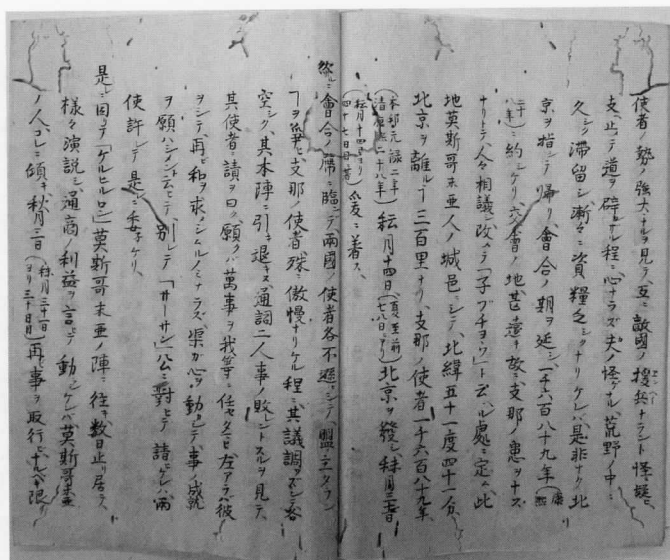 使者ノ勢ノ強大ナルヲ見テ互ニ敵國ノ援兵ナラント怪ミ疑ヒ
支ヘ止テ道ヲ辟ケル程ニ心ナラズ夫ノ怪ゲナル荒野ノ中ニ
久シク滞留シ漸々ニ資糧乏シクナリケレバ是非ナク北
京ヲ指シテ帰リ會合ノ期ヲ延シ一千六百八十九年
ニ約シケリ 會ノ地甚タ遠キ故ニ支那ノ患ヲナス
ナリトテ人々相議シ改メテ「子ブチヨウ」ト云ヘル處ニ定ム此
地莫斯哥未亜人ノ城邑ニシテ北緯五十一度四十一分
北京ヲ離ルヿ三百里ナリ支那ノ使者一千六百八十九年
本邦元禄二年 清康熙二十八年 秐月十四日 夏至前 七八日ナリ 北京ヲ發シ秣月三日
秐月十四ヨリ 四十七日目 ニ着ス
然ルニ會合ノ席ニ臨ンデ両國ノ使者各不遜ニシテ盟主タラン
ヿヲ爭ヒ支那ノ使者殊ニ傲慢ナリケル程ニ其議調ハズシテ各
空シク其本陣ニ引キ退ク 通詞二人事ノ敗レントスルヲ見テ
其使者ニ請テ曰ク願クハ萬事ヲ我等ニ任セタマヘ左アラバ彼
ヲシテ再ビ和ヲ求メシムルノミナラズ渠カ心ヲ動カシテ事ノ成就
ヲ願ハシメント云ヒテ別シテ「サーサン」公ニ對シテ請ヒケレバ両
使許シテ是ニ委子ケリ
是ニ因テ「ゲルビルロン」莫斯哥未亜ノ陣ニ往キ数日止リ居テ
様々演説シ通商ノ利益ヲ言ヒテ動シケレバ莫斯哥未亜
ノ人コレニ傾キ秣月三日 ヨリ三十日目 再ビ事ヲ取行ヒ 限リ